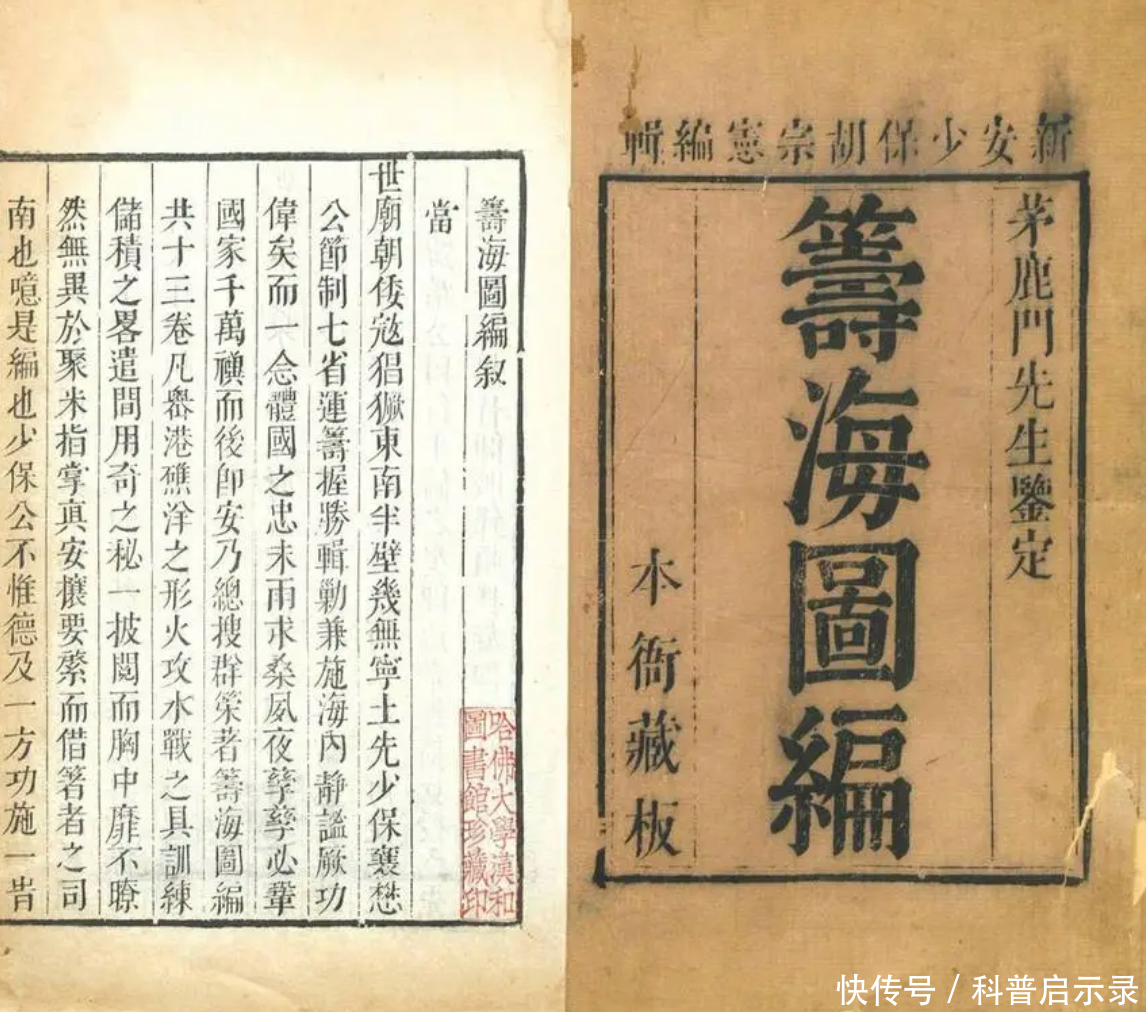 新安少保胡宗憲編輯
茅鹿門先生鑒定
籌海圖編
本衙藏板
籌海圖編敘
當
世廟朝倭寇猖獗東南半壁幾無寧土先少保襄懋
公節制七省運籌握勝輯勦兼施海內靜謐厥功
偉矣而一念體國之忠未雨求桑夙夜孳孳必鞏
國家千萬禩而後卽安乃總搜群策著籌海圖編
共十三卷凡嶴港礁洋之形火攻水戰之具訓練
儲積之畧遣間用奇之秘一披閱而胸中靡不暸
然無異於聚米指掌真安攘要綮而借箸者之司
南也噫是編也少保公不惟德及一方功施一旹
哈佛大學漢和
圖書館珍藏印
快传号 / 科普启示录